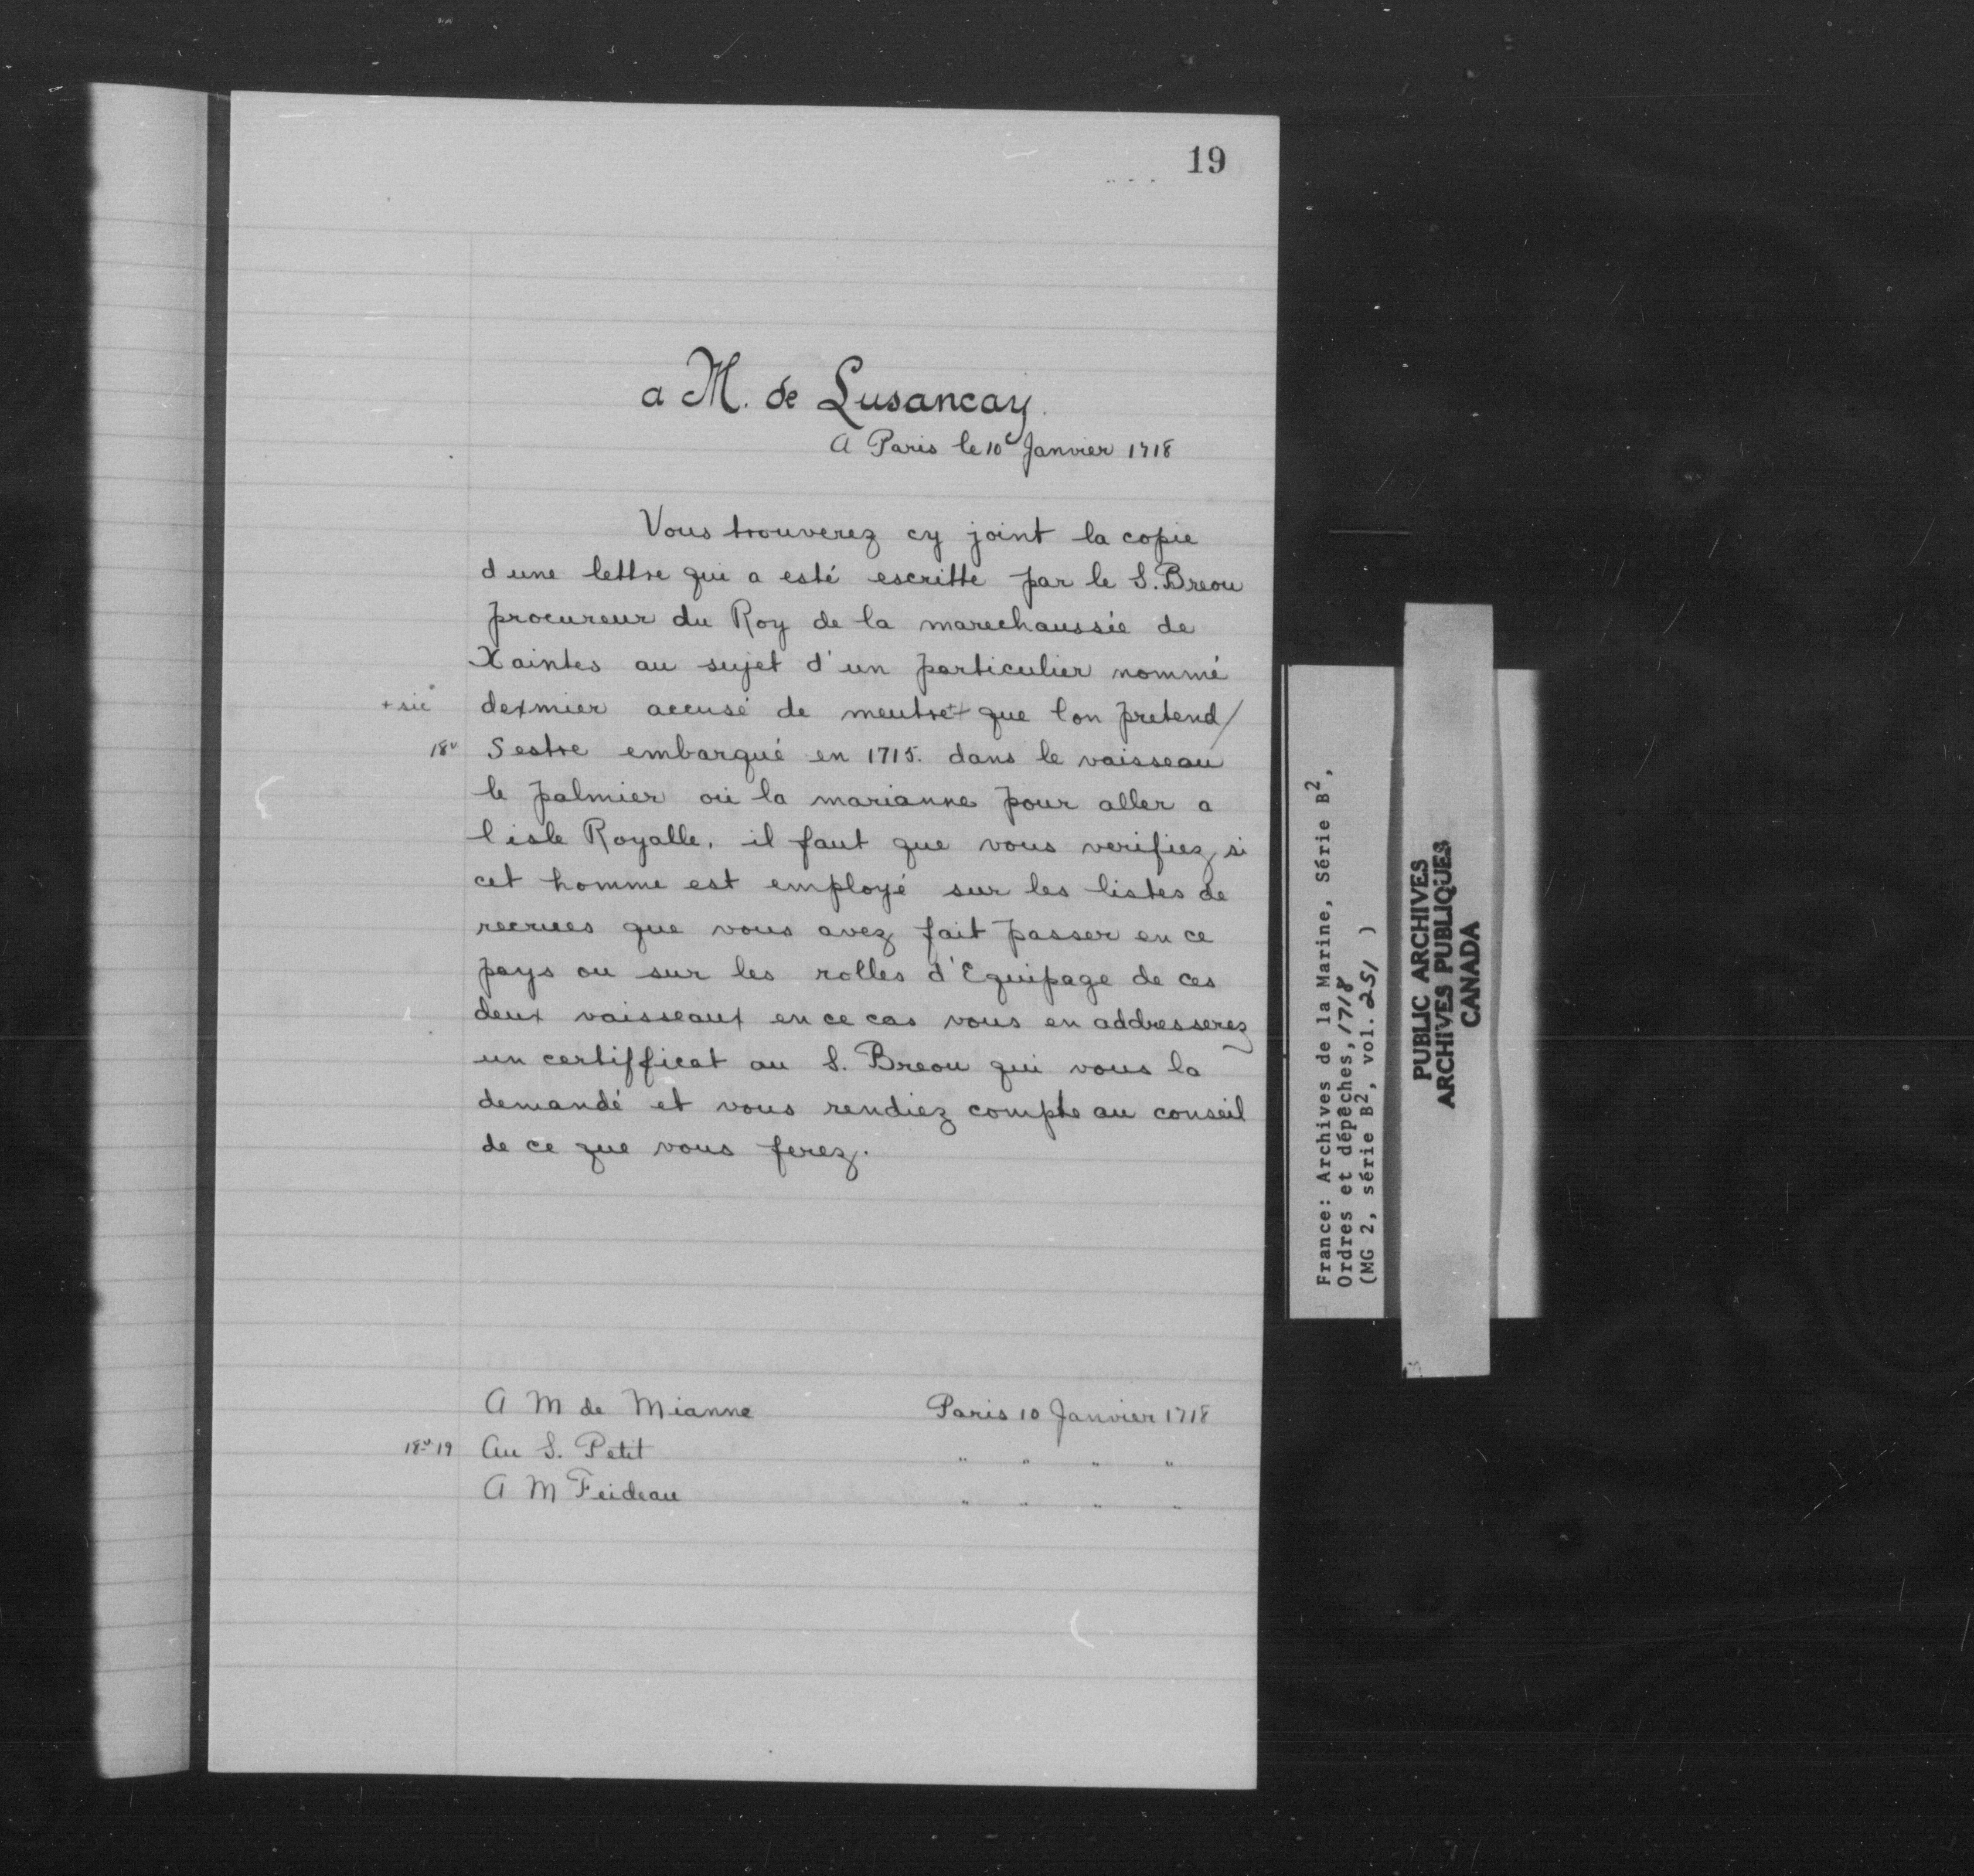 19
a M. de Lusancay.
A Paris le 10e Janvier 1718
Vous trouverez cy joint la copie
d une lettre qui a esté escritte par le S. Breou
procureur du Roy de la marechaussée de
Xaintes au sujet d'un particulier nommé
+ sic dexmier accusé de meutre+ que lon pretend/
18v Sestre embarqué en 1715. dans le vaisseau
le palmier où la marianne pour aller a
l isle Royalle. il faut que vous verifiez si
cet homme est employé sur les listes de
recrues que vous avez fait passer en ce
pays ou sur les rolles d'Equipage de ces
deux vaisseaux en ce cas vous en addresserez
un certifficat au S. Breou qui vous la
demandé et vous rendiez compte au conseil
de ce que vous ferez.
A M de Mianne Paris 10 Janvier 1718
18v-19 Au S. Petit " " " "
A M Feideau " " " "
France: Archives de la Marine, Série B2,
Ordres et dépêches, 1718
(MG 2, série B2, vol. 251 )
PUBLIC ARCHIVES
ARCHIVES PUBLIQUES
CANADA